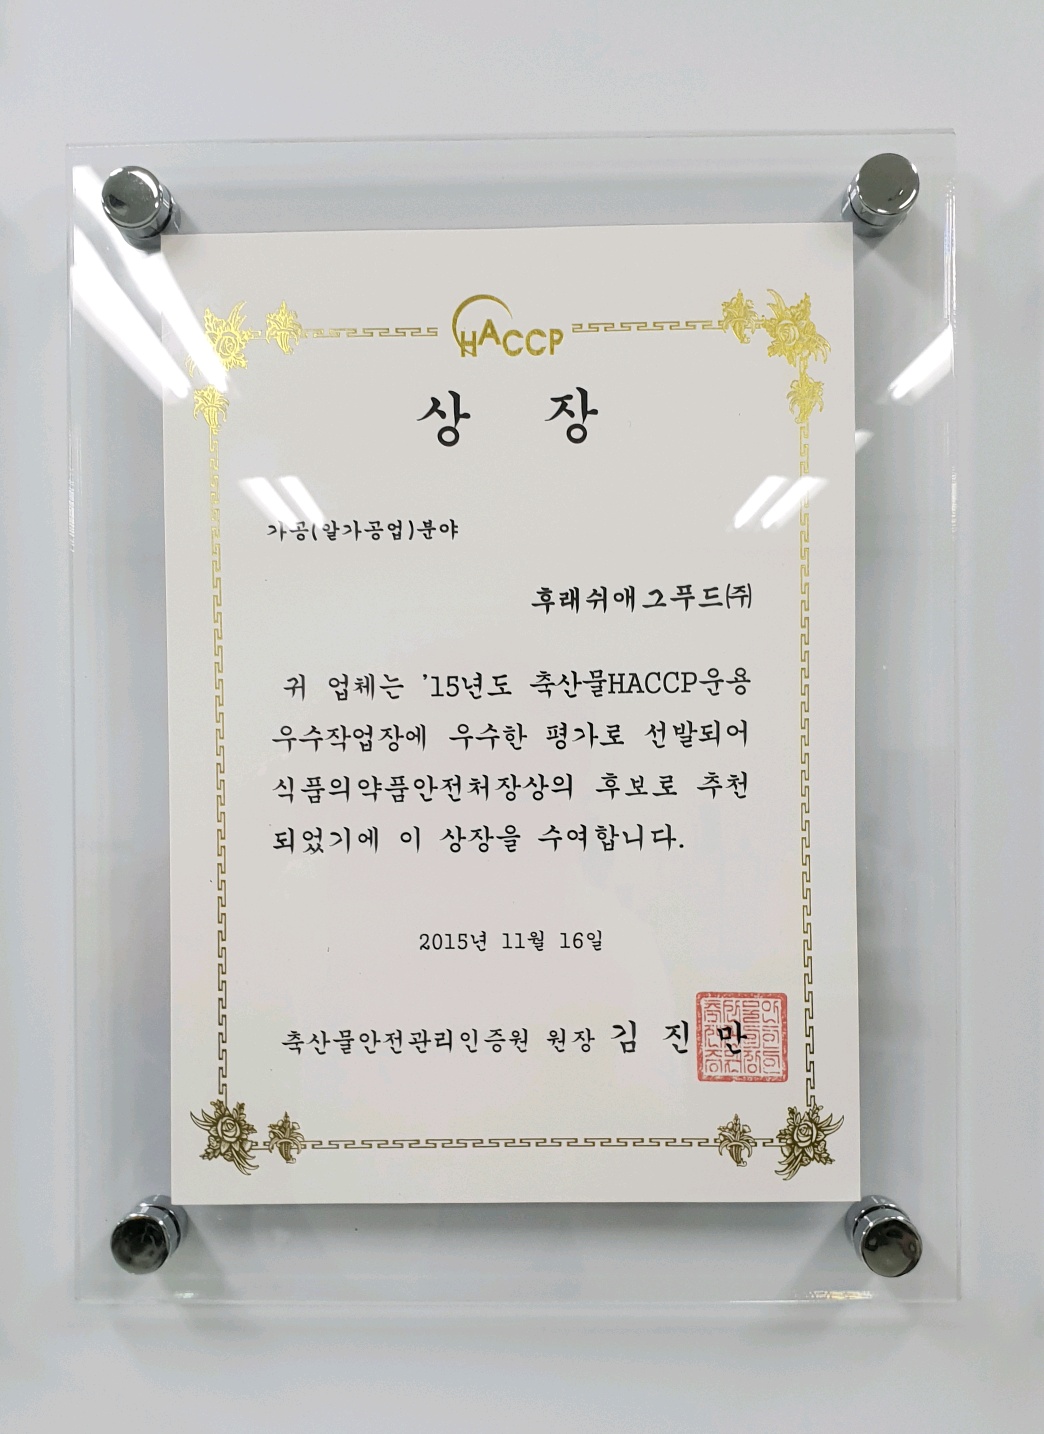 HACCP
상 장
가공(알가공업)분야
후래쉬애그푸드㈜
귀 업체는 '15년도 축산물HACCP운용
우수작업장에 우수한 평가로 선발되어
식품의약품안전처장상의 후보로 추천
되었기에 이 상장을 수여합니다.
2015년 11월 16일
축산물안전관리인증원 원장 김 진 만